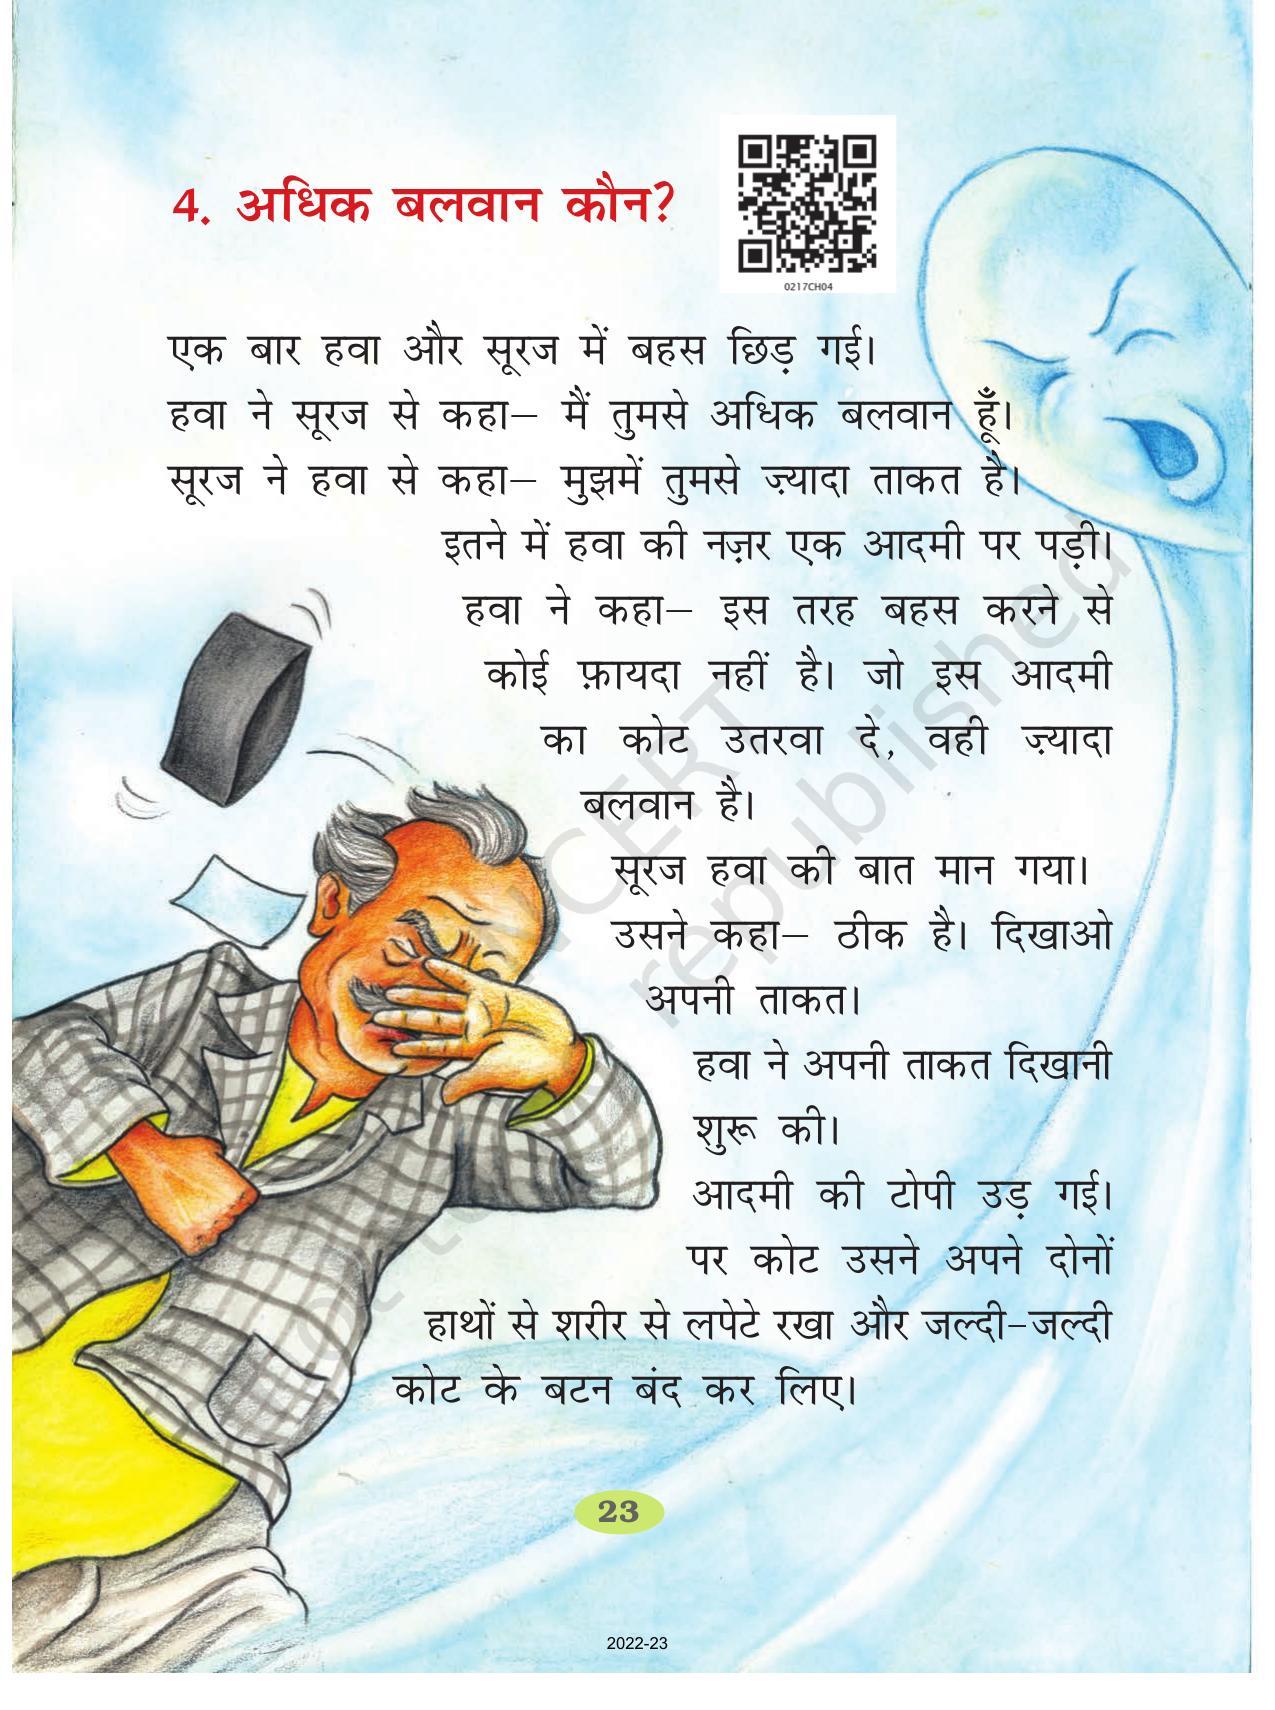 4. अधिक बलवान कौन?
0217CH04
एक बार हवा और सूरज में बहस छिड़ गई।
हवा ने सूरज से कहा– मैं तुमसे अधिक बलवान हूँ।
सूरज ने हवा से कहा– मुझमें तुमसे ज़्यादा ताकत है।
इतने में हवा की नज़र एक आदमी पर पड़ी।
हवा ने कहा– इस तरह बहस करने से
कोई फ़ायदा नहीं है। जो इस आदमी
का कोट उतरवा दे, वही ज़्यादा
बलवान है।
सूरज हवा की बात मान गया।
उसने कहा– ठीक है। दिखाओ
अपनी ताकत।
हवा ने अपनी ताकत दिखानी
शुरू की।
आदमी की टोपी उड़ गई।
पर कोट उसने अपने दोनों
हाथों से शरीर से लपेटे रखा और जल्दी-जल्दी
कोट के बटन बंद कर लिए।
23
2022-23
NCERT
republished